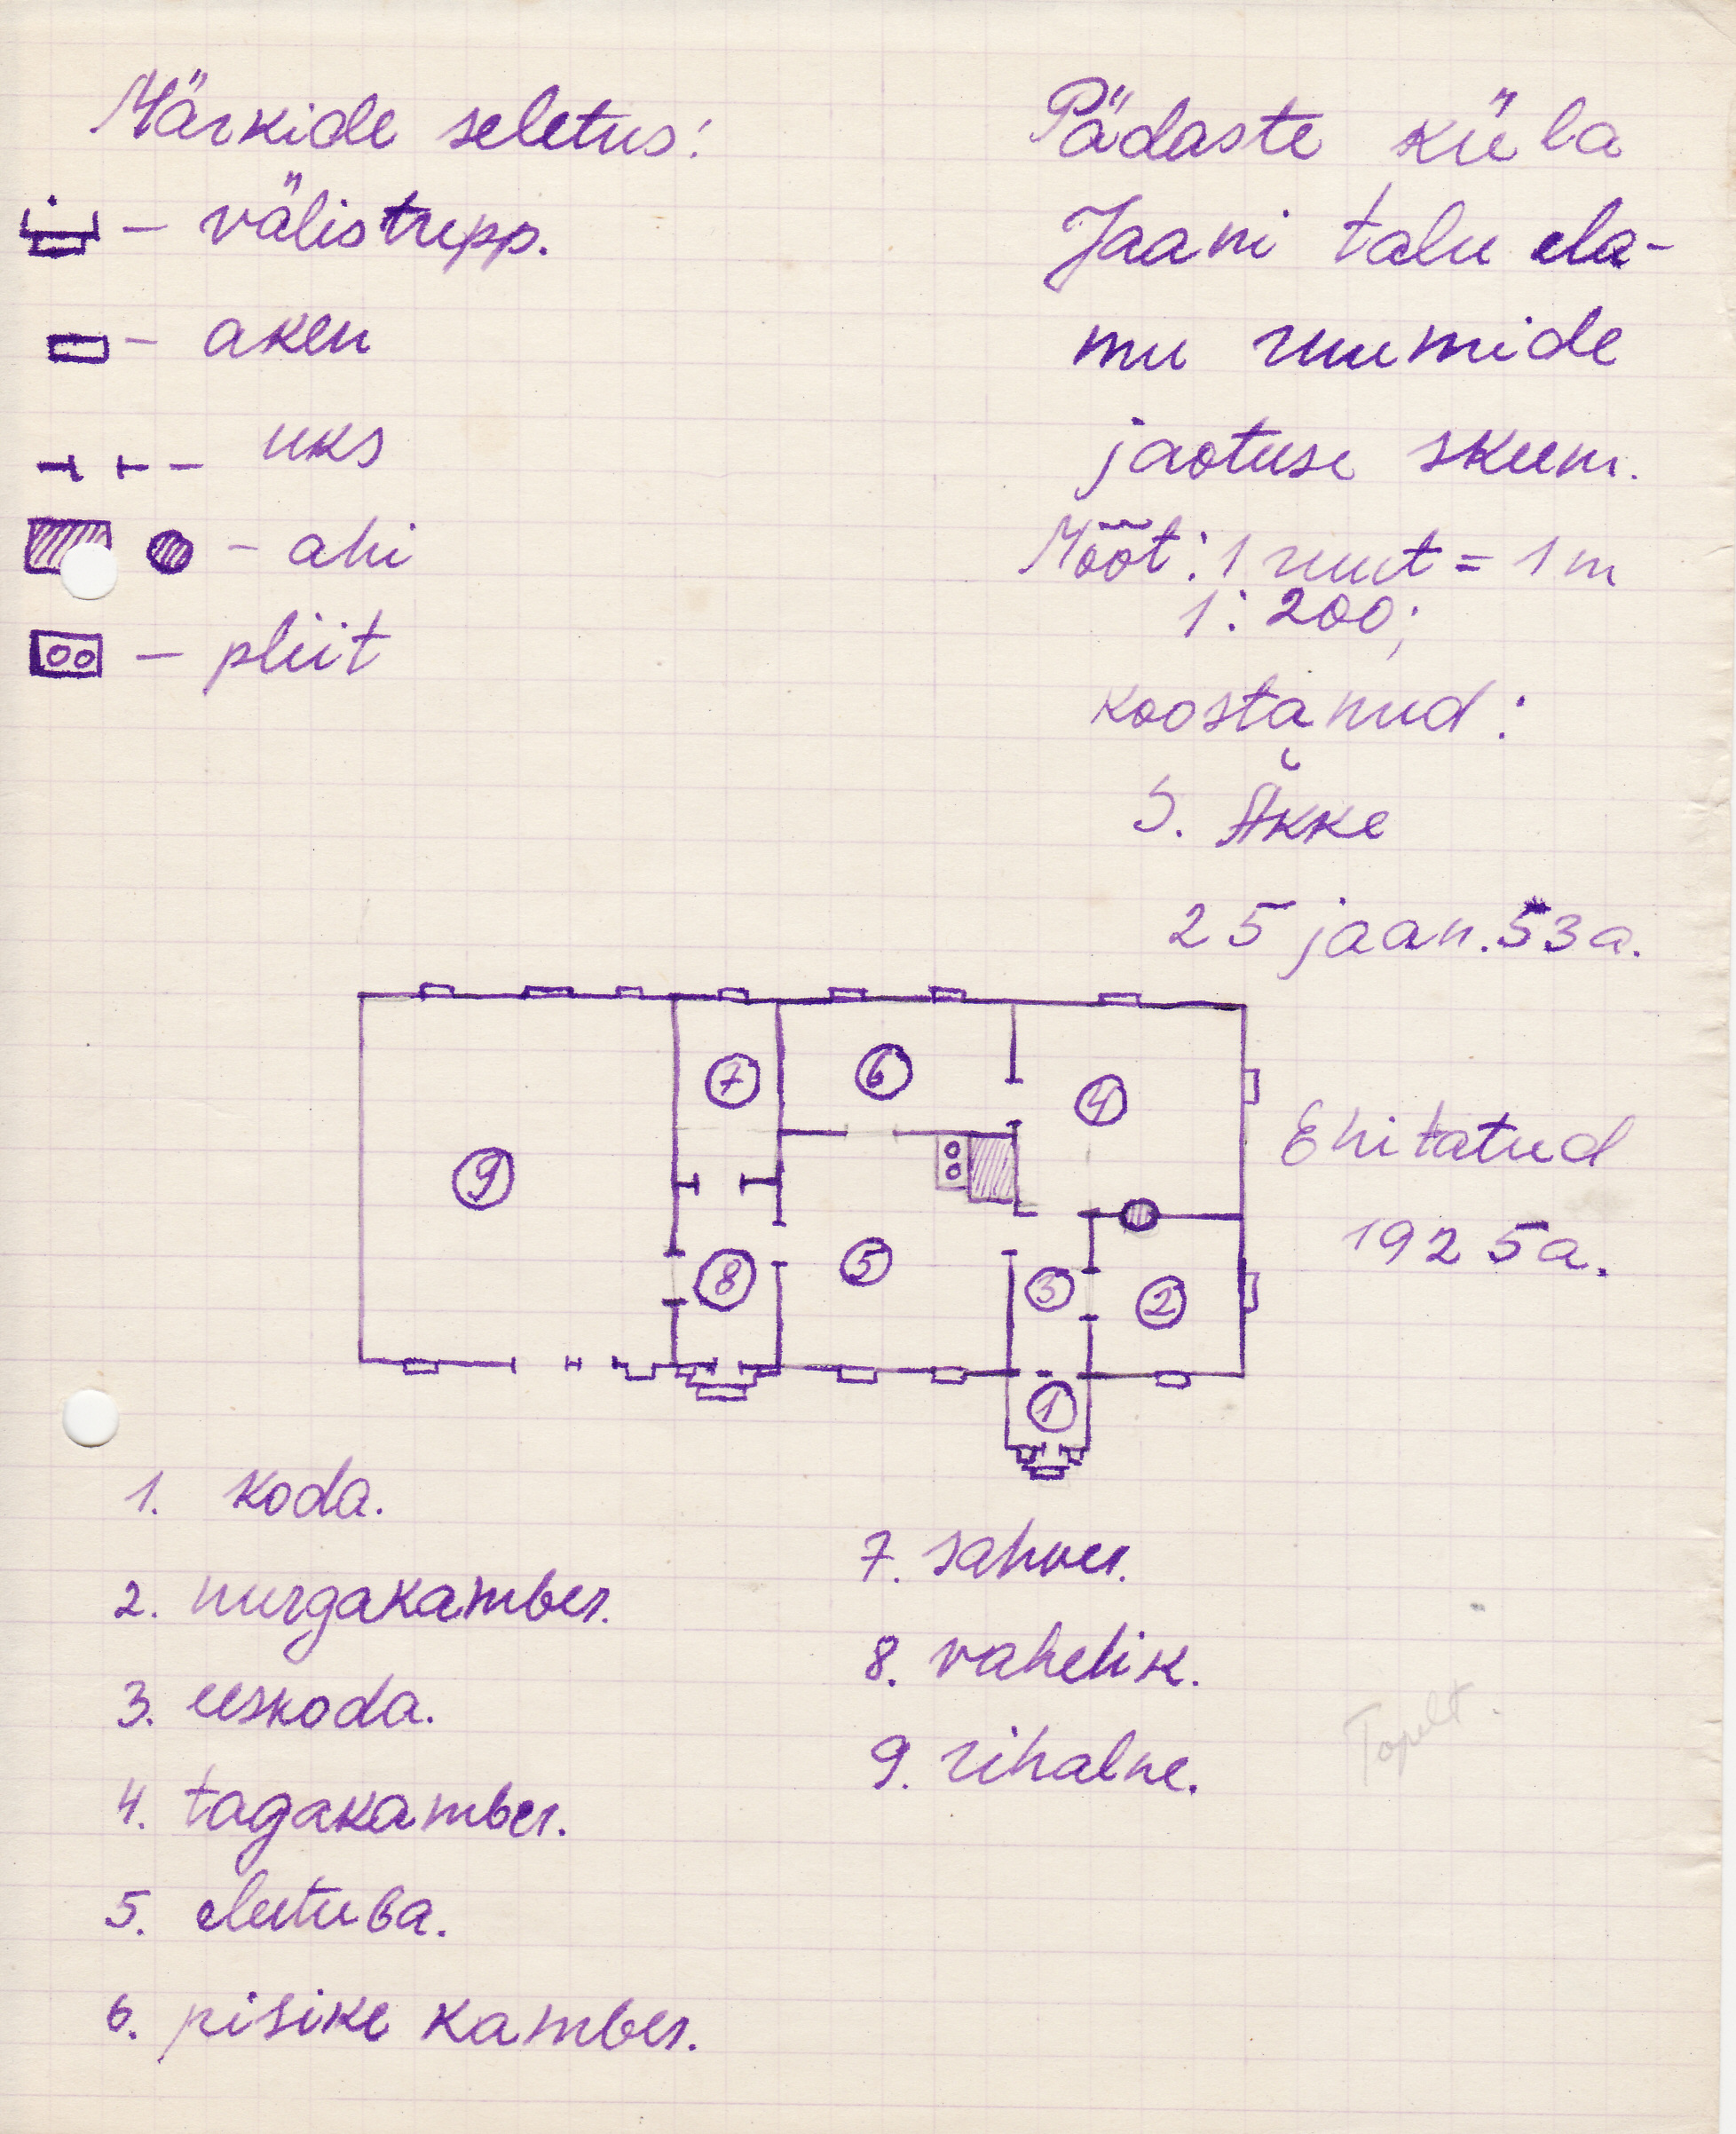 Märkide seletus:
– välistrepp.
– aken
– uks
– ahi
– pliit
Pädaste küla
Jaani talu ela-
mu ruumide
jaotuse skeem.
Mõõt: 1 ruut = 1 m
1:200;
koostanud:
S. Äkke
25 jaan. 53 a.
7
6
4
9
8
5
3
2
1
Ehitatud
1925 a.
1. koda.
2. nurgakamber.
3. eeskoda.
4. tagakamber.
5. elutuba.
6. pisike kamber.
7. sahver.
8. vahelik.
9. rihalne.
Topelt.